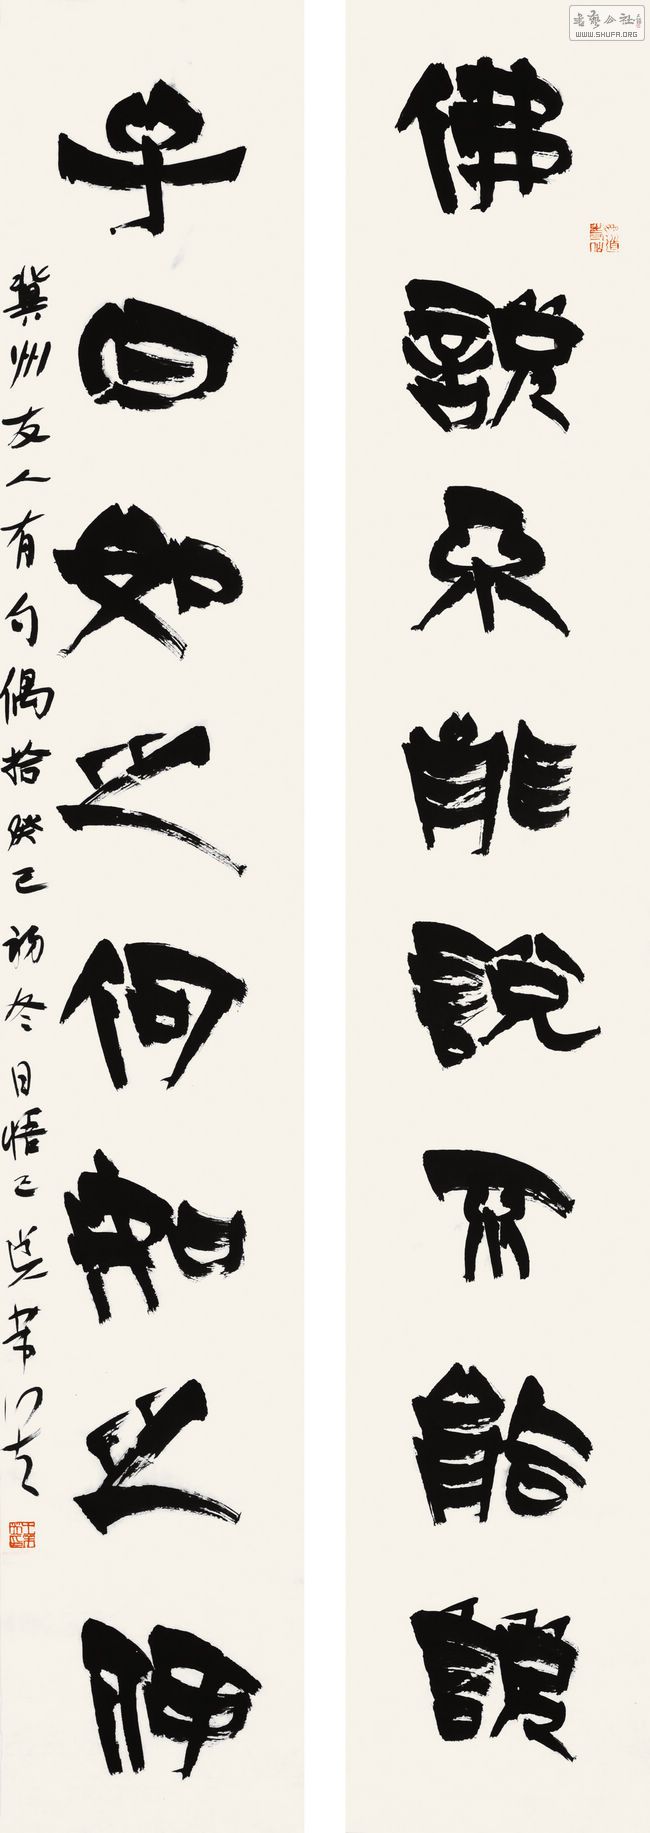 佛說不能說不能說
子曰如之何如之何
冀州友人有句偶拾癸巳初冬日悟
書藝公社
WWW.SHUFA.ORG